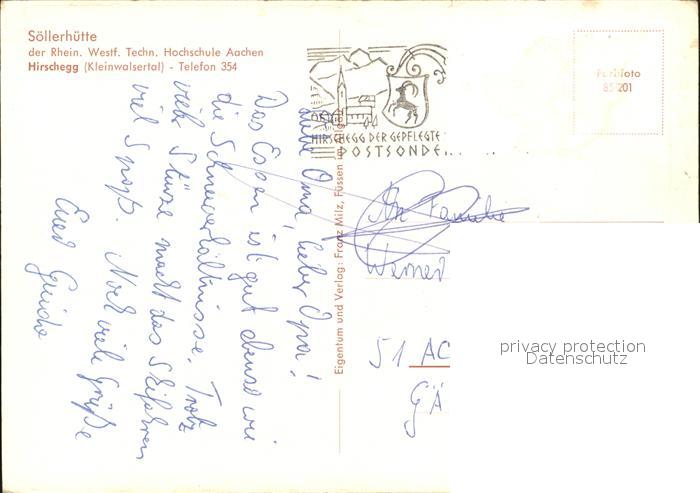 Söllerhütte
der Rhein. Westf. Techn. Hochschule Aachen
Hirschegg (Kleinwalsertal) - Telefon 354
Liebe Oma, lieber Opa!
Das Essen ist gut ebenso wie
die Schneeverhältnisse. Trotz
vieler Stürze macht das Skifahren
viel Spaß. Noch viele Grüße
Eure
Eigentum und Verlag: Franz Milz, Füssen im Allgäu
HIRSCHEGG DER GEPFLEGTE
POSTSONDE
Farbfoto
85 201
An Familie
Werner
51 AC
GÄ
privacy protection
Datenschutz